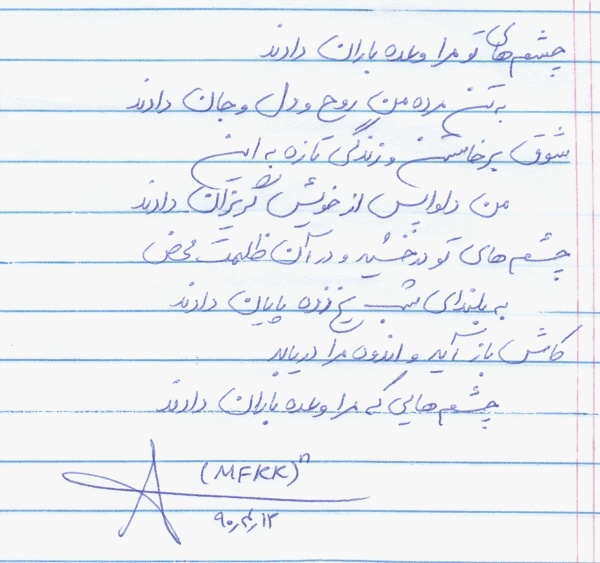 چشم‌های تو مرا وعده باران دادند
به تن مرده من روح و دل و جان دادند
شوق برخاستن و زندگی تازه به این
من دلواپس از خویش گریزان دادند
چشم‌های تو درخشید و در آن ظلمت محض
به بلندای شب یخ زده پایان دادند
کاش باز آید و اندوه مرا دریابد
چشم‌هایی که مرا وعده باران دادند
(MFKK)ⁿ
۹۰٫۴٫۱۲